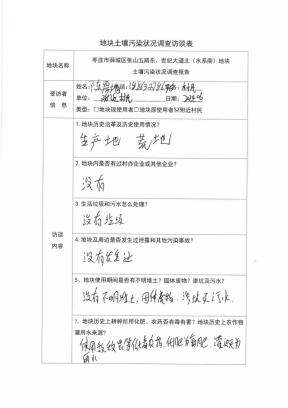 地块土壤污染状况调查访谈表
地块名称
枣庄市薛城区张山五路东、世纪大道北（水系南）地块
土壤污染状况调查报告
受访者
信 息
姓名：
单位：
日期：
类型：□地块现使用者□地块原使用者☑附近村民
访谈
内容
1. 地块历史沿革及历史使用情况？
生产土地 荒土地
2. 地块内是否有过村办企业或其他企业？
没有
3. 生活垃圾和污水怎么处理？
没有垃圾
4. 地块及周边是否发生过泄露和其他污染事故？
没有发生过
5、地块使用期间是否有不明堆土？固体废物？渗坑及污水？
没有不明堆土，固体废物，渗坑及污水。
7、地块历史上耕种所用化肥、农药否有毒有害？地块历史上农作物
灌用水来源？